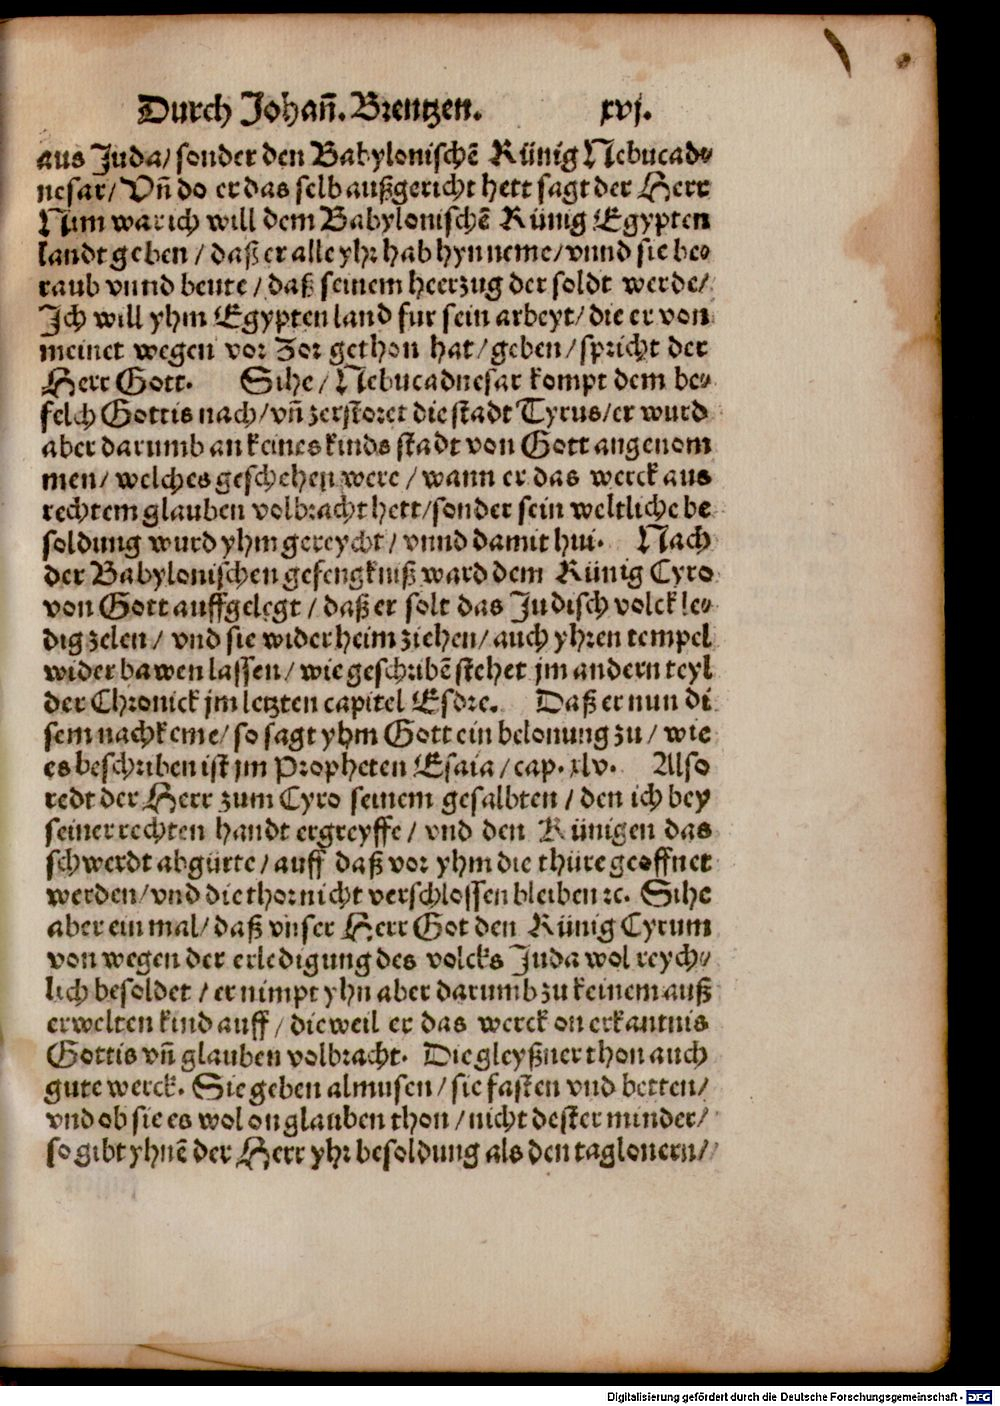 Durch Johañ. Brentzen. xvj.
aus Juda/ sonder den Babylonischē Künig Nebucad⸗
nesar/ Vñ do er das selb außgericht hett sagt der Herr
Nim war ich will dem Babylonischē Künig Egypten
landt geben / daß er alle yhr hab hyn neme/ vnnd sie be⸗
raub vnnd beute / daß seinem heerzug der soldt werde/
Jch will yhm Egypten land fur sein arbeyt/ die er von
meinet wegen vor Zor gethon hat/ geben/ spricht der
Herr Gott. Sihe / Nebucadnesar kompt dem be⸗
felch Gottis nach/ vñ zerstoret die stadt Tyrus/ er wurd
aber darumb an keines kinds stadt von Gott angenom
men/ welches geschehen were / wann er das werck aus
rechtem glauben volbracht hett/ sonder sein weltliche be
soldung wurd yhm gereycht / vnnd damit hui. Nach
der Babylonischen gefengkniß ward dem Künig Cyro
von Gott auffgelegt / daß er solt das Judisch volck le⸗
dig zelen / vnd sie wider heim ziehen/ auch yhren tempel
wider bawen lassen/ wie geschribē stehet jm andern teyl
der Chronick jm letzten capitel Esdre. Daß er nun di
sem nachkeme/ so sagt yhm Gott ein belonung zu / wie
es beschriben ist jm Propheten Esaia / cap. xlv. Also
redt der Herr zum Cyro seinem gesalbten / den ich bey
seiner rechten handt ergreyffe / vnd den Künigen das
schwerdt abgürte/ auff daß vor yhm die thüre geoffnet
werden/ vnd die thor nicht verschlossen bleiben ꝛc. Sihe
aber ein mal/ daß vnser Herr Got den Künig Cyrum
von wegen der erledigung des volcks Juda wol reych⸗
lich besoldet / er nimpt yhn aber darumb zu keinem auß
erwelten kind auff / dieweil er das werck on erkantnis
Gottis vñ glauben volbracht. Die gleyßner thon auch
gute werck. Sie geben almusen/ sie fasten vnd betten/
vnd ob sie es wol on glauben thon / nicht dester minder/
so gibt yhnē der Herr yhr besoldung als den taglonern/
Digitalisierung gefördert durch die Deutsche Forschungsgemeinschaft - DFG